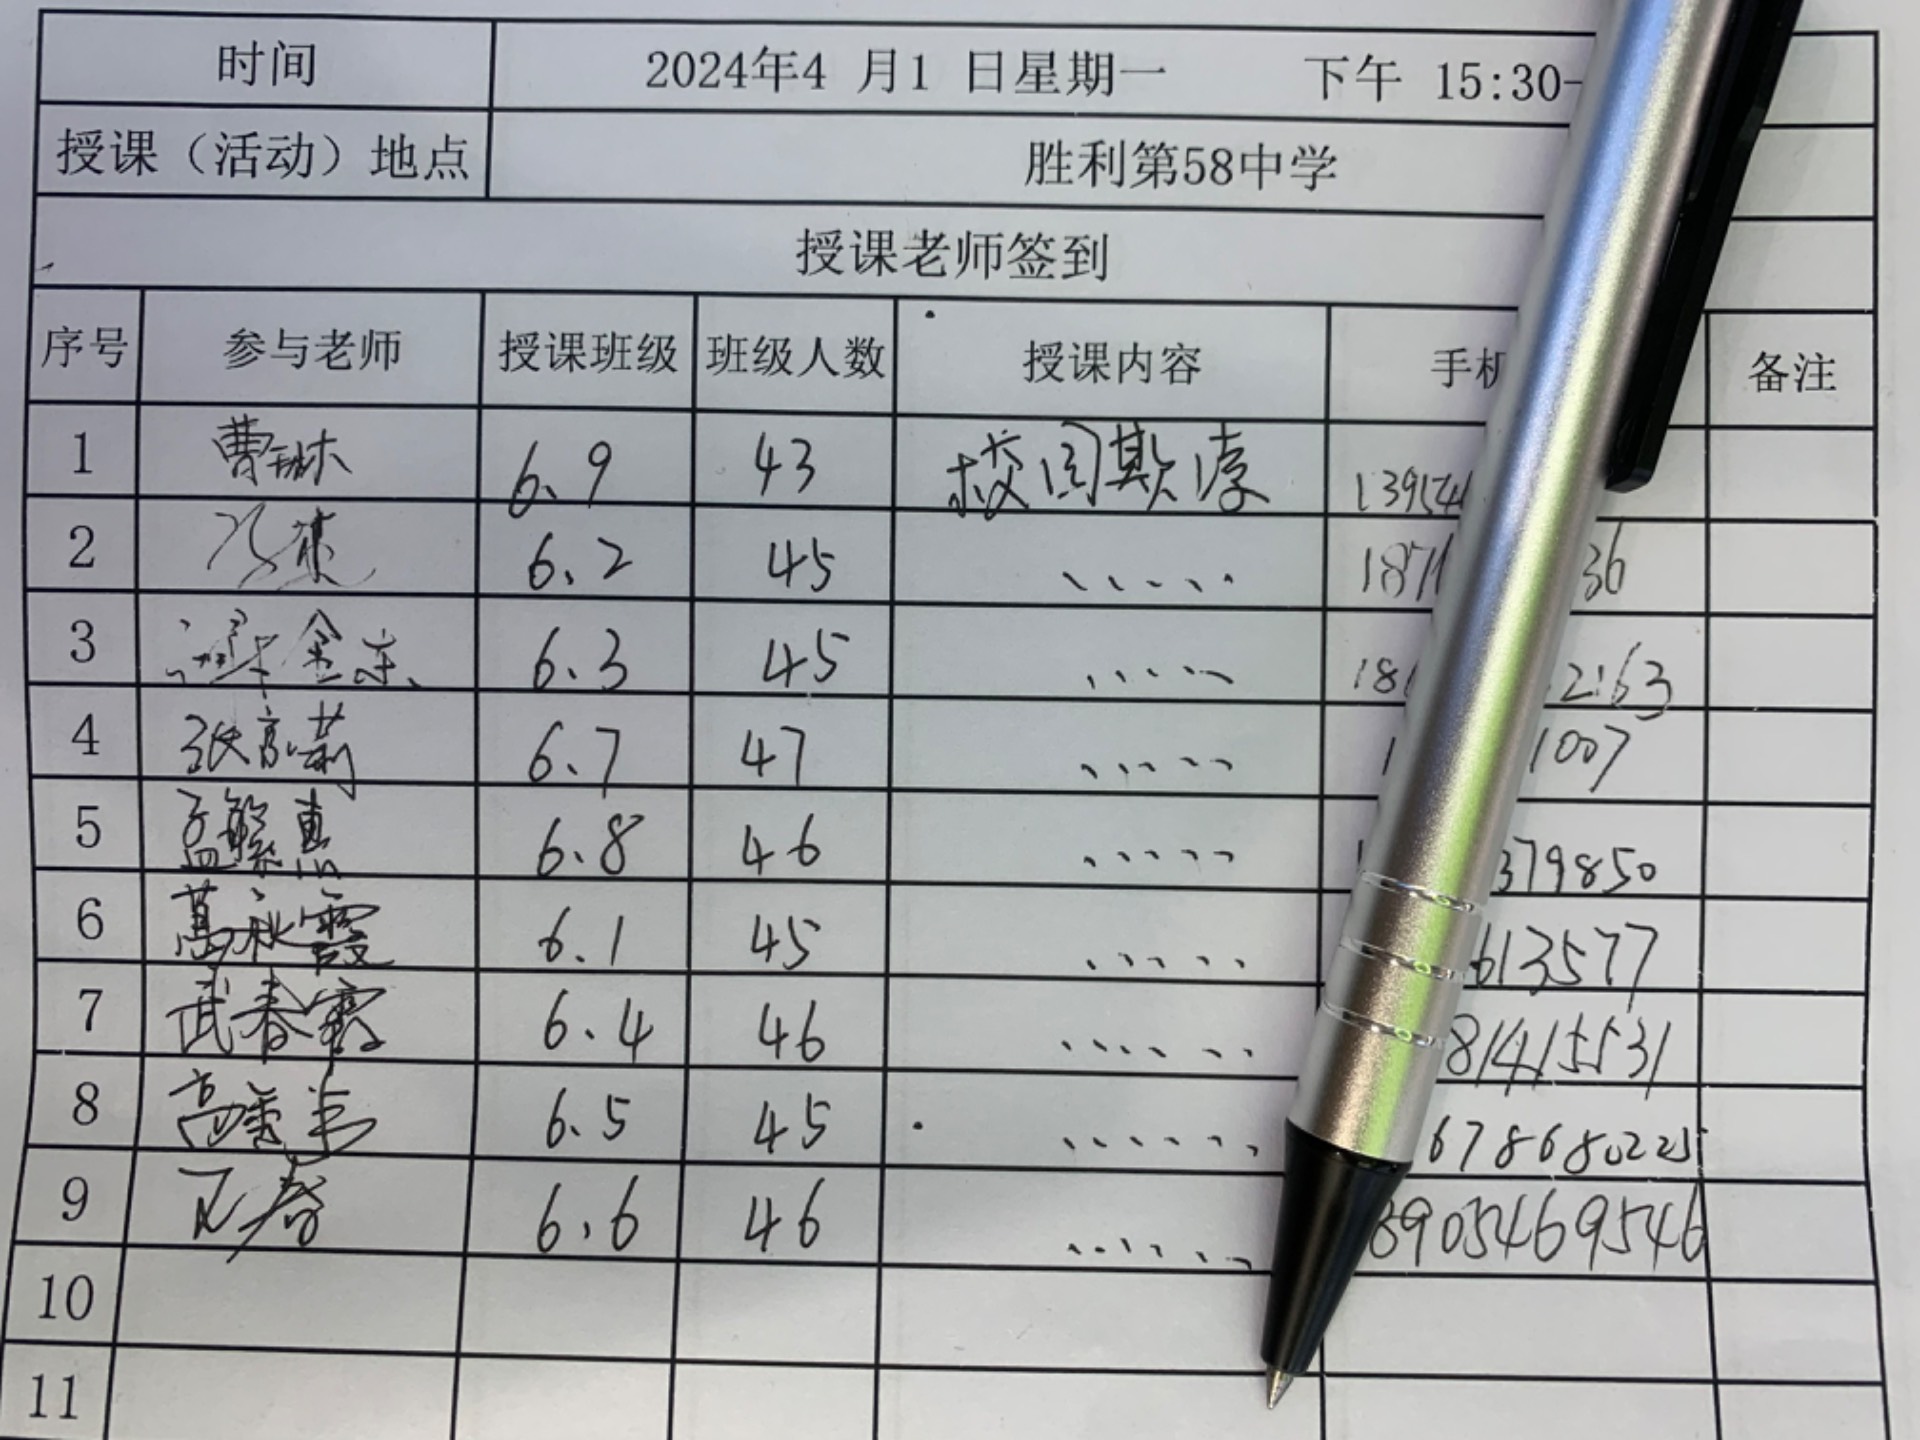 时间 2024年4 月1 日星期一 下午 15:30-
授课（活动）地点 胜利第58中学
授课老师签到
序号 参与老师 授课班级 班级人数 授课内容 手机 备注
1 曹琳 6.9 43 校园欺凌 13954
2 6.2 45 1871 36
3 金 6.3 45 18 2163
4 张莉 6.7 47 1 1007
5 孟繁惠 6.8 46 379850
6 葛秋霞 6.1 45 613577
7 武春霞 6.4 46 81415531
8 高 6.5 45 678680225
9 春 6.6 46 8905469546
10
11